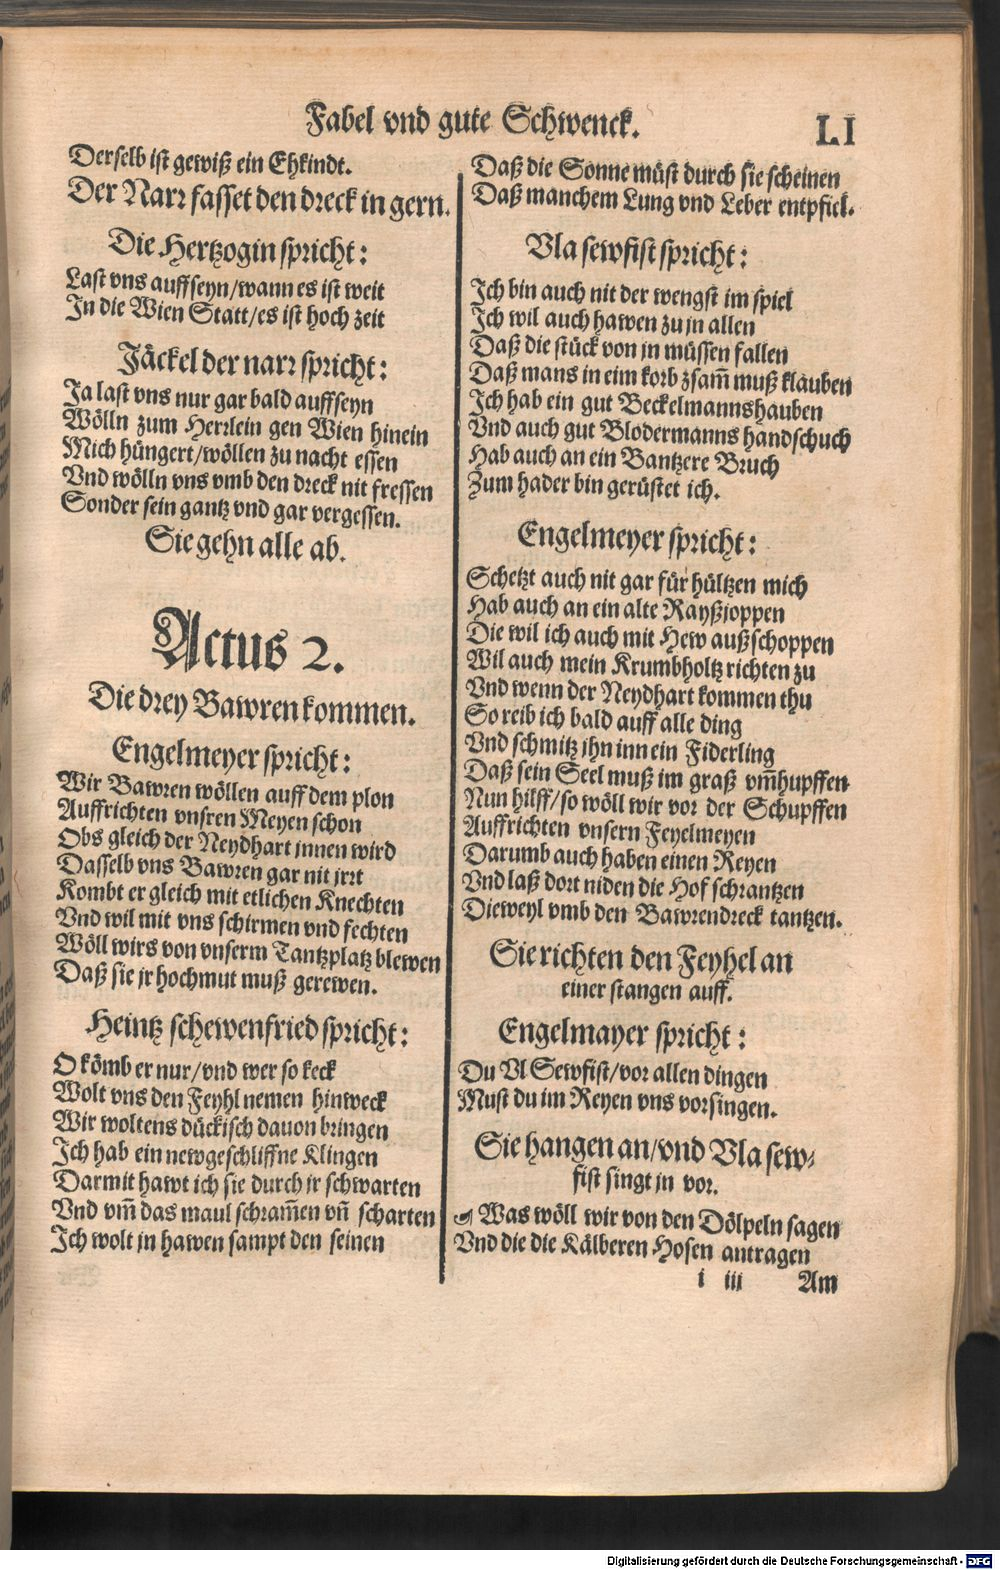 Fabel vnd gute Schwenck.
LI
Derselb ist gewiß ein Ehkindt.
Der Narr fasset den dreck in gern.
Die Hertzogin spricht:
Last vns auffseyn/wann es ist weit
In die Wien Statt/es ist hoch zeit
Jäckel der narr spricht:
Ja last vns nur gar bald auffseyn
Wölln zum Herrlein gen Wien hinein
Mich hüngert/wöllen zu nacht essen
Vnd wölln vns vmb den dreck nit fressen
Sonder sein gantz vnd gar vergessen.
Sie gehn alle ab.
Actus 2.
Die drey Bawren kommen.
Engelmeyer spricht:
Wir Bawren wöllen auff dem plon
Auffrichten vnsren Meyen schon
Obs gleich der Neydhart jnnen wird
Dasselb vns Bawren gar nit jrrt
Kombt er gleich mit etlichen Knechten
Vnd wil mit vns schirmen vnd fechten
Wöll wirs von vnserm Tantzplatz blewen
Daß sie jr hochmut muß gerewen.
Heintz schewenfried spricht:
O kömb er nur/vnd wer so keck
Wolt vns den Feyhl nemen hinweck
Wir woltens dückisch dauon bringen
Ich hab ein newgeschliffne Klingen
Darmit hawt ich sie durch jr schwarten
Vnd vm̃ das maul schram̃en vñ scharten
Ich wolt jn hawen sampt den seinen
Daß die Sonne müst durch sie scheinen
Daß manchem Lung vnd Leber entpfiel.
Vla sewfist spricht:
Ich bin auch nit der wengst im spiel
Ich wil auch hawen zu jn allen
Daß die stück von jn müssen fallen
Daß mans in eim korb zsam̃ muß klauben
Ich hab ein gut Beckelmannshauben
Vnd auch gut Blodermanns handschuch
Hab auch an ein Bantzere Bruch
Zum hader bin gerüstet ich.
Engelmeyer spricht:
Schetzt auch nit gar für hültzen mich
Hab auch an ein alte Rayßjoppen
Die wil ich auch mit Hew außschoppen
Wil auch mein Krumbholtz richten zu
Vnd wenn der Neydhart kommen thu
So reib ich bald auff alle ding
Vnd schmitz jhn inn ein Fiderling
Daß sein Seel muß im graß vm̃hupffen
Nun hilff/so wöll wir vor der Schupffen
Auffrichten vnsern Feyelmeyen
Darumb auch haben einen Reyen
Vnd laß dort niden die Hof schrantzen
Dieweyl vmb den Bawrendreck tantzen.
Sie richten den Feyhel an
einer stangen auff.
Engelmayer spricht:
Du Vl Sewfist/vor allen dingen
Must du im Reyen vns vorsingen.
Sie hangen an/vnd Vla sew-
fist singt jn vor.
☙ Was wöll wir von den Dölpeln sagen
Vnd die die Kälberen Hosen antragen
i iij
Am
Digitalisierung gefördert durch die Deutsche Forschungsgemeinschaft - DFG